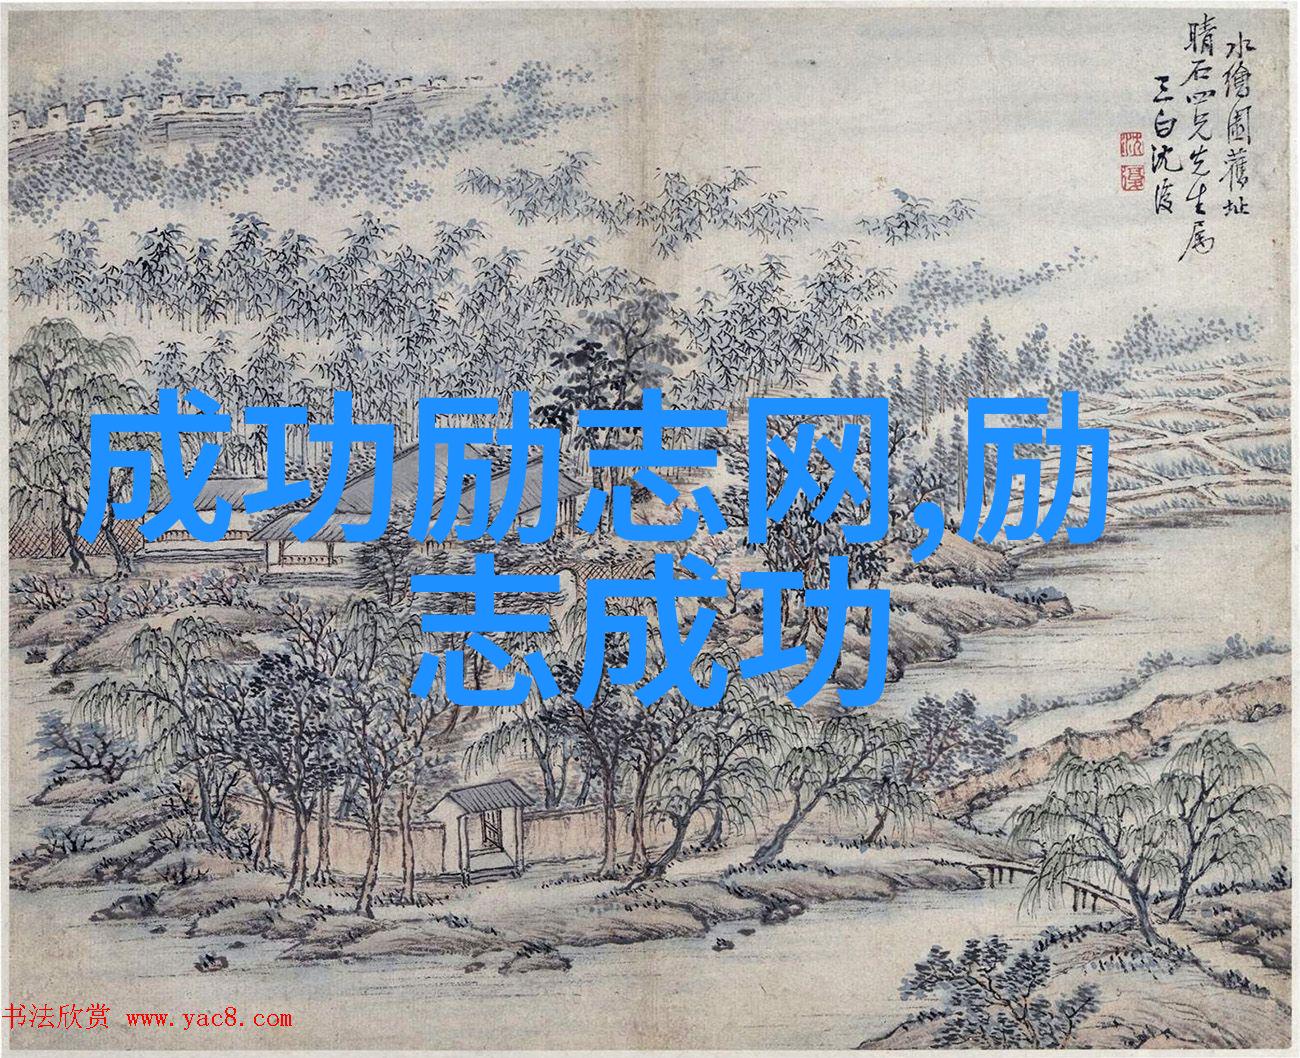 水繪園舊址
晴石四兄先生属
三白沈复
沈
復
成功励志网,励
志成功
书法欣赏 www.yac8.com